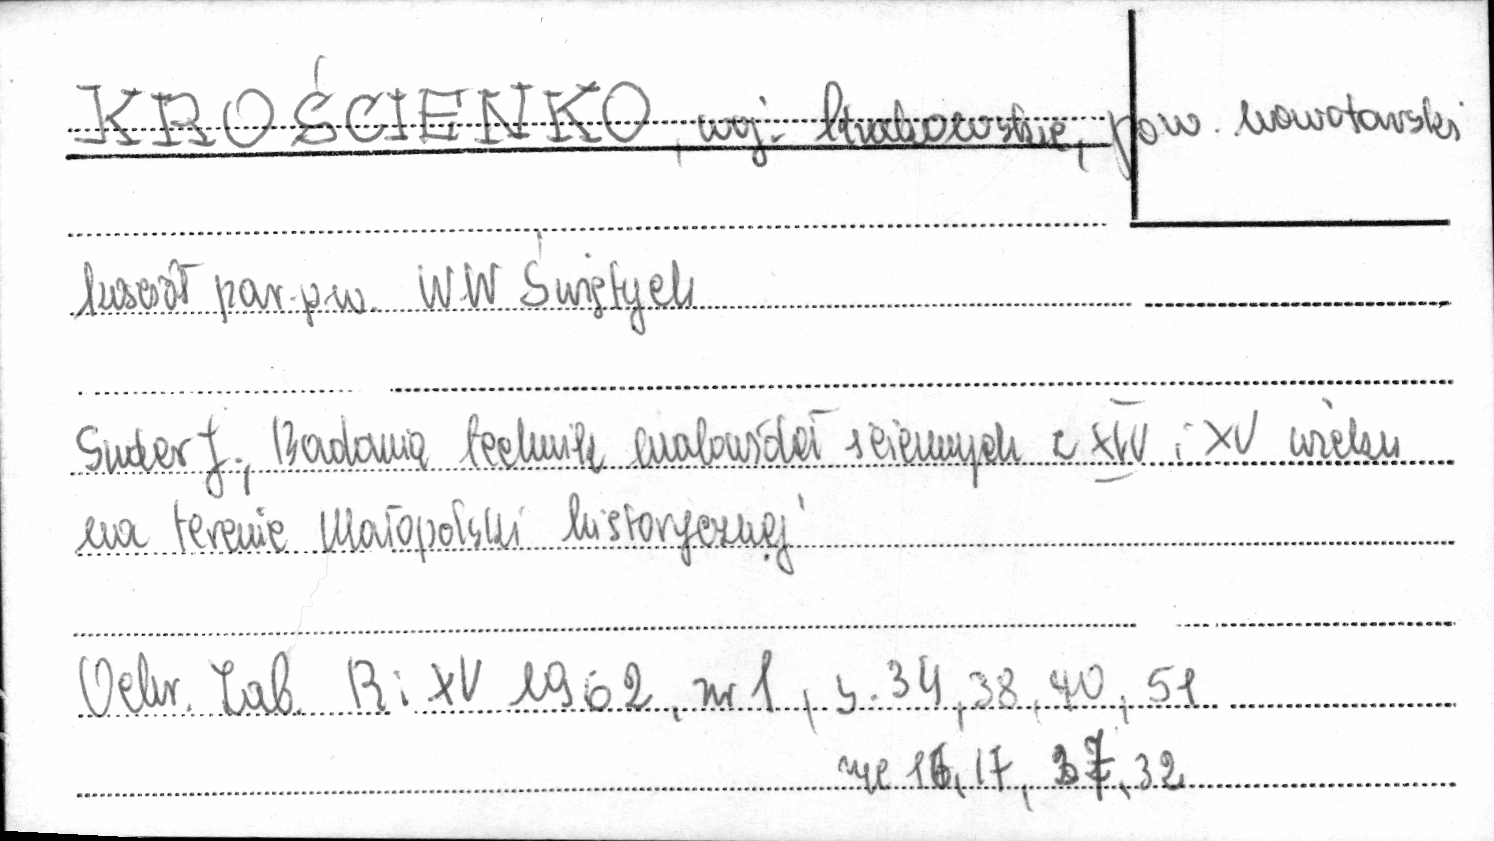 KROŚCIENKO, woj. krakowskie, pow. nowotarski
kościół par. p.w. WW Świętych
Suter J., Badania technik malowideł ściennych z XIV i XV wieku
na terenie Małopolski historycznej
Ochr. Zab. R: XV 1962, nr 1, s. 34, 38, 40, 51
ryc 16, 17, 32